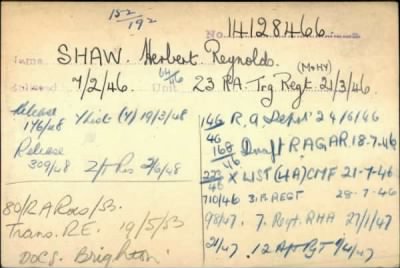 152/192
No. 14128466
Name SHAW. Herbert Reynolds.
(M&HY)
7/2/46. 64/46 Unit 23 RA. Trg Regt. 21/3/46.
Release Yhist (Y) 19/3/48
176/48
Release
309/48 Z/T Res 2/6/48
146/46 R.A Depot 24/6/46
168/46 Draft RAGAR. 18-7-46
222/46 X LIST (4A) CMF 21-7-46
710/46 31 REGT 28-7-46
98/47. 7. Regt. RHA 27/1/47
21/47. 12 A Regt 9/4/47
80/RA Rcds/53.
Trans. R.E. 19/5/53
DOCS. Brighton